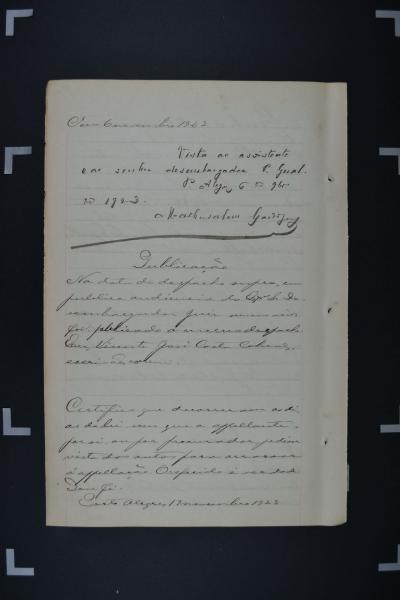 Em 6 novembro 1923
Vista ao assistente
e ao senhor desembargador P. Geral.
P. Alegre, 6 de 9bro
de 1923.
Publicação
Na data do despacho supra, em
publica audiencia do Exmo. Sr. De-
sembargador Juiz semanario
foi publicado o mesmo despacho.
Eu, Vicente José Costa
escrivão
Certifico que decorreram os di-
as da lei sem que a appellante,
por si ou por procurador, pedisse
vista dos autos para arrazoar
a appellação. O referido é verdade
Dou fé.
Porto Alegre, novembro 1923